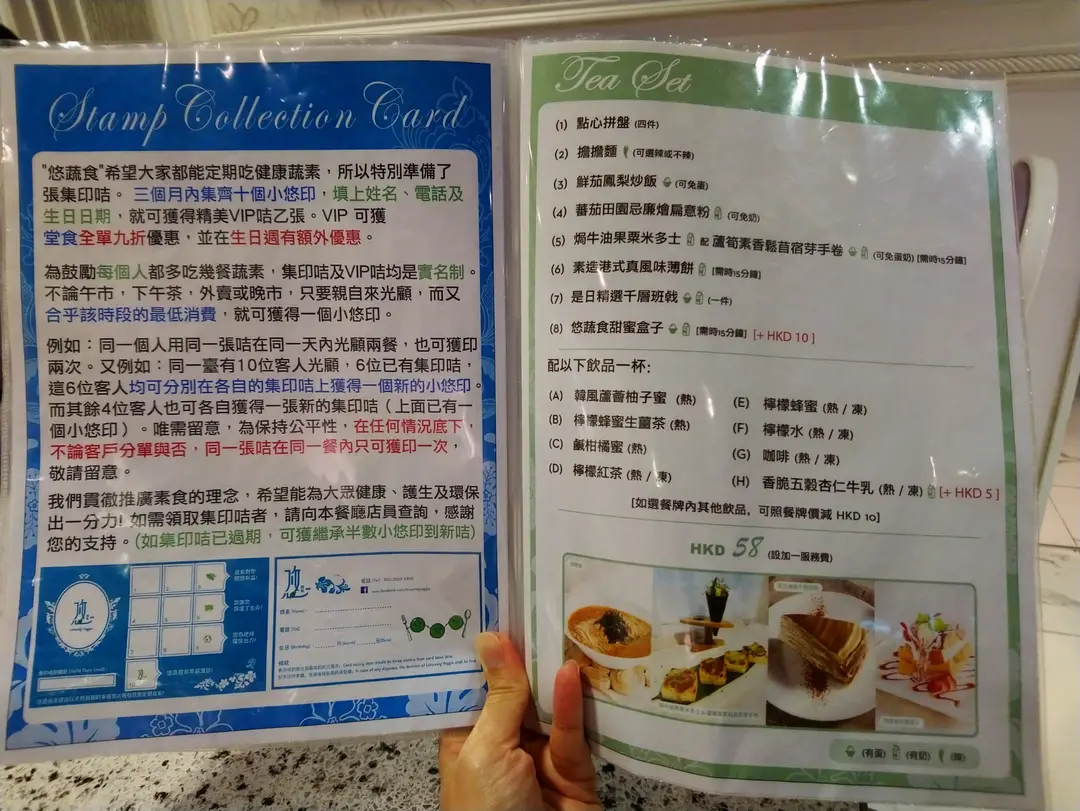 Stamp Collection Card
"悠蔬食"希望大家都能定期吃健康蔬素，所以特別準備了
張集印咭。 三個月內集齊十個小悠印，填上姓名、電話及
生日日期，就可獲得精美VIP咭乙張。VIP 可獲
堂食全單九折優惠，並在生日週有額外優惠。
為鼓勵每個人都多吃幾餐蔬素，集印咭及VIP咭均是實名制。
不論午市，下午茶，外賣或晚市，只要親自來光顧，而又
合乎該時段的最低消費，就可獲得一個小悠印。
例如：同一個人用同一張咭在同一天內光顧兩餐，也可獲印
兩次。又例如：同一臺有10位客人光顧，6位已有集印咭，
這6位客人均可分別在各自的集印咭上獲得一個新的小悠印。
而其餘4位客人也可各自獲得一張新的集印咭（上面已有一
個小悠印）。唯需留意，為保持公平性，在任何情況底下，
不論客戶分單與否，同一張咭在同一餐內只可獲印一次，
敬請留意。
我們貫徹推廣素食的理念，希望能為大眾健康、護生及環保
出一分力! 如需領取集印咭者，請向本餐廳店員查詢，感謝
您的支持。(如集印咭已過期，可獲繼承半數小悠印到新咭)
Tea Set
(1) 點心拼盤 (四件)
(2) 擔擔麵 (可選辣或不辣)
(3) 鮮茄鳳梨炒飯 (可免蛋)
(4) 蕃茄田園忌廉燴扁意粉 (可免奶)
(5) 焗牛油果粟米多士 配 蘆筍素香鬆苜宿芽手卷 (可免蛋奶) [需時15分鐘]
(6) 素造港式真風味薄餅 [需時15分鐘]
(7) 是日精選千層班戟 (一件)
(8) 悠蔬食甜蜜盒子 [需時15分鐘] [+ HKD 10 ]
配以下飲品一杯:
(A) 韓風蘆薈柚子蜜 (熱)
(B) 檸檬蜂蜜生薑茶 (熱)
(C) 鹹柑橘蜜 (熱)
(D) 檸檬紅茶 (熱 / 凍)
(E) 檸檬蜂蜜 (熱 / 凍)
(F) 檸檬水 (熱 / 凍)
(G) 咖啡 (熱 / 凍)
(H) 香脆五穀杏仁牛乳 (熱 / 凍) [+ HKD 5 ]
[如選餐牌內其他飲品，可照餐牌價減 HKD 10]
HKD 58 (設加一服務費)
(有蛋) (有奶) (辣)